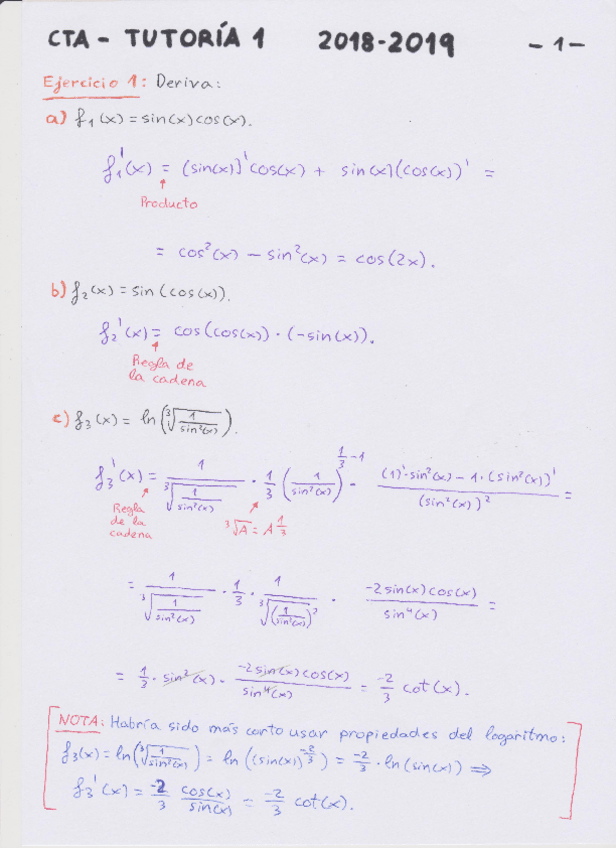 CTA - TUTORÍA 1 2018-2019 - 1 -
Ejercicio 1: Deriva:
a) f₁(x) = sin(x)cos(x).
f₁'(x) = (sin(x))'cos(x) + sin(x)(cos(x))' =
↑
Producto
= cos²(x) - sin²(x) = cos(2x).
b) f₂(x) = sin(cos(x)).
f₂'(x) = cos(cos(x)) · (-sin(x)).
↑
Regla de
la cadena
c) f₃(x) = ln(∛(1/sin²(x))).
f₃'(x) = 1/∛(1/sin²(x)) · 1/3 (1/sin²(x))^(1/3 - 1) · ((1)'·sin²(x) - 1·(sin²(x))')/(sin²(x))² =
Regla
de la
cadena
∛A = A^(1/3)
= 1/∛(1/sin²(x)) · 1/3 · 1/∛((1/sin²(x))²) · (-2sin(x)cos(x))/sin⁴(x) =
= 1/3 · sin²(x) · (-2sin(x)cos(x))/sin⁴(x) = -2/3 cot(x).
NOTA: Habría sido más corto usar propiedades del logaritmo:
f₃(x) = ln(∛(1/sin²(x))) = ln((sin(x))^(-2/3)) = -2/3 · ln(sin(x)) ⇒
f₃'(x) = -2/3 cos(x)/sin(x) = -2/3 cot(x).